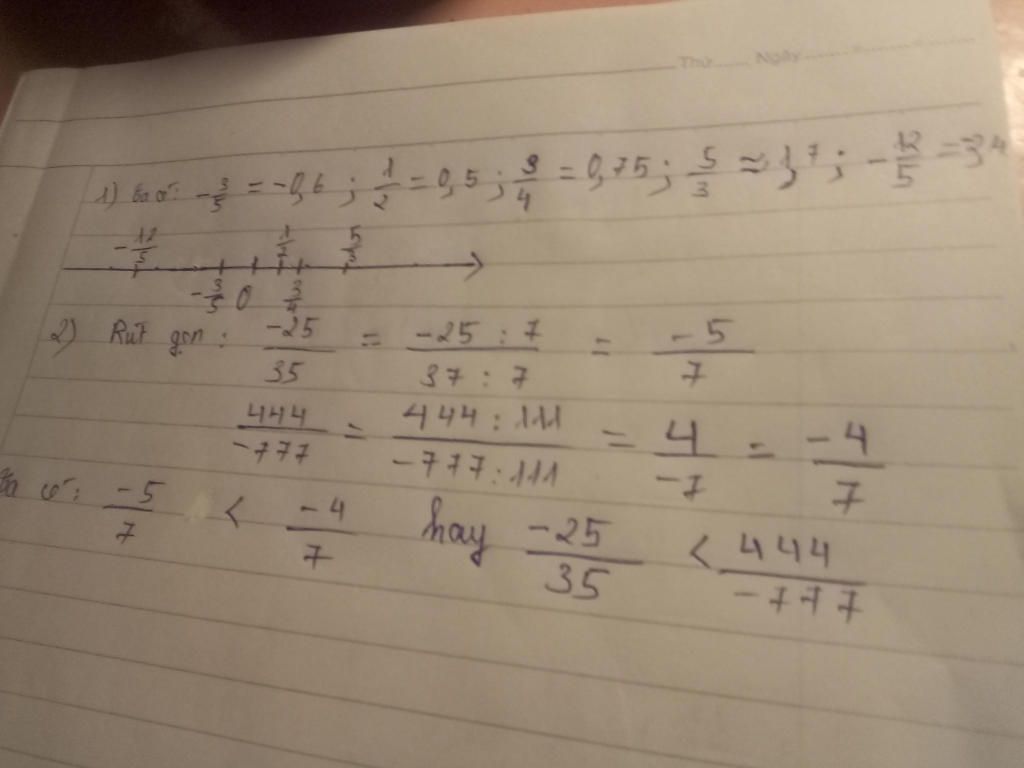 Thứ ...... Ngày ......-......-......
1) Ta có: -3/5 = -0,6 ; 1/2 = 0,5 ; 3/4 = 0,75 ; 5/3 ≈ 1,7 ; -12/5 =
-12/5 1/2 5/3
-3/5 0 3/4
2) Rút gọn: -25/35 = -25 : 7/37 : 7 = -5/7
444/-777 = 444 : 111/-777 : 111 = 4/-7 = -4/7
Ta có: -5/7 < -4/7 hay -25/35 < 444/-777